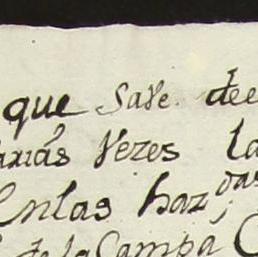 que save de
arias Vezes la
Enlas haz.das
de la Campa